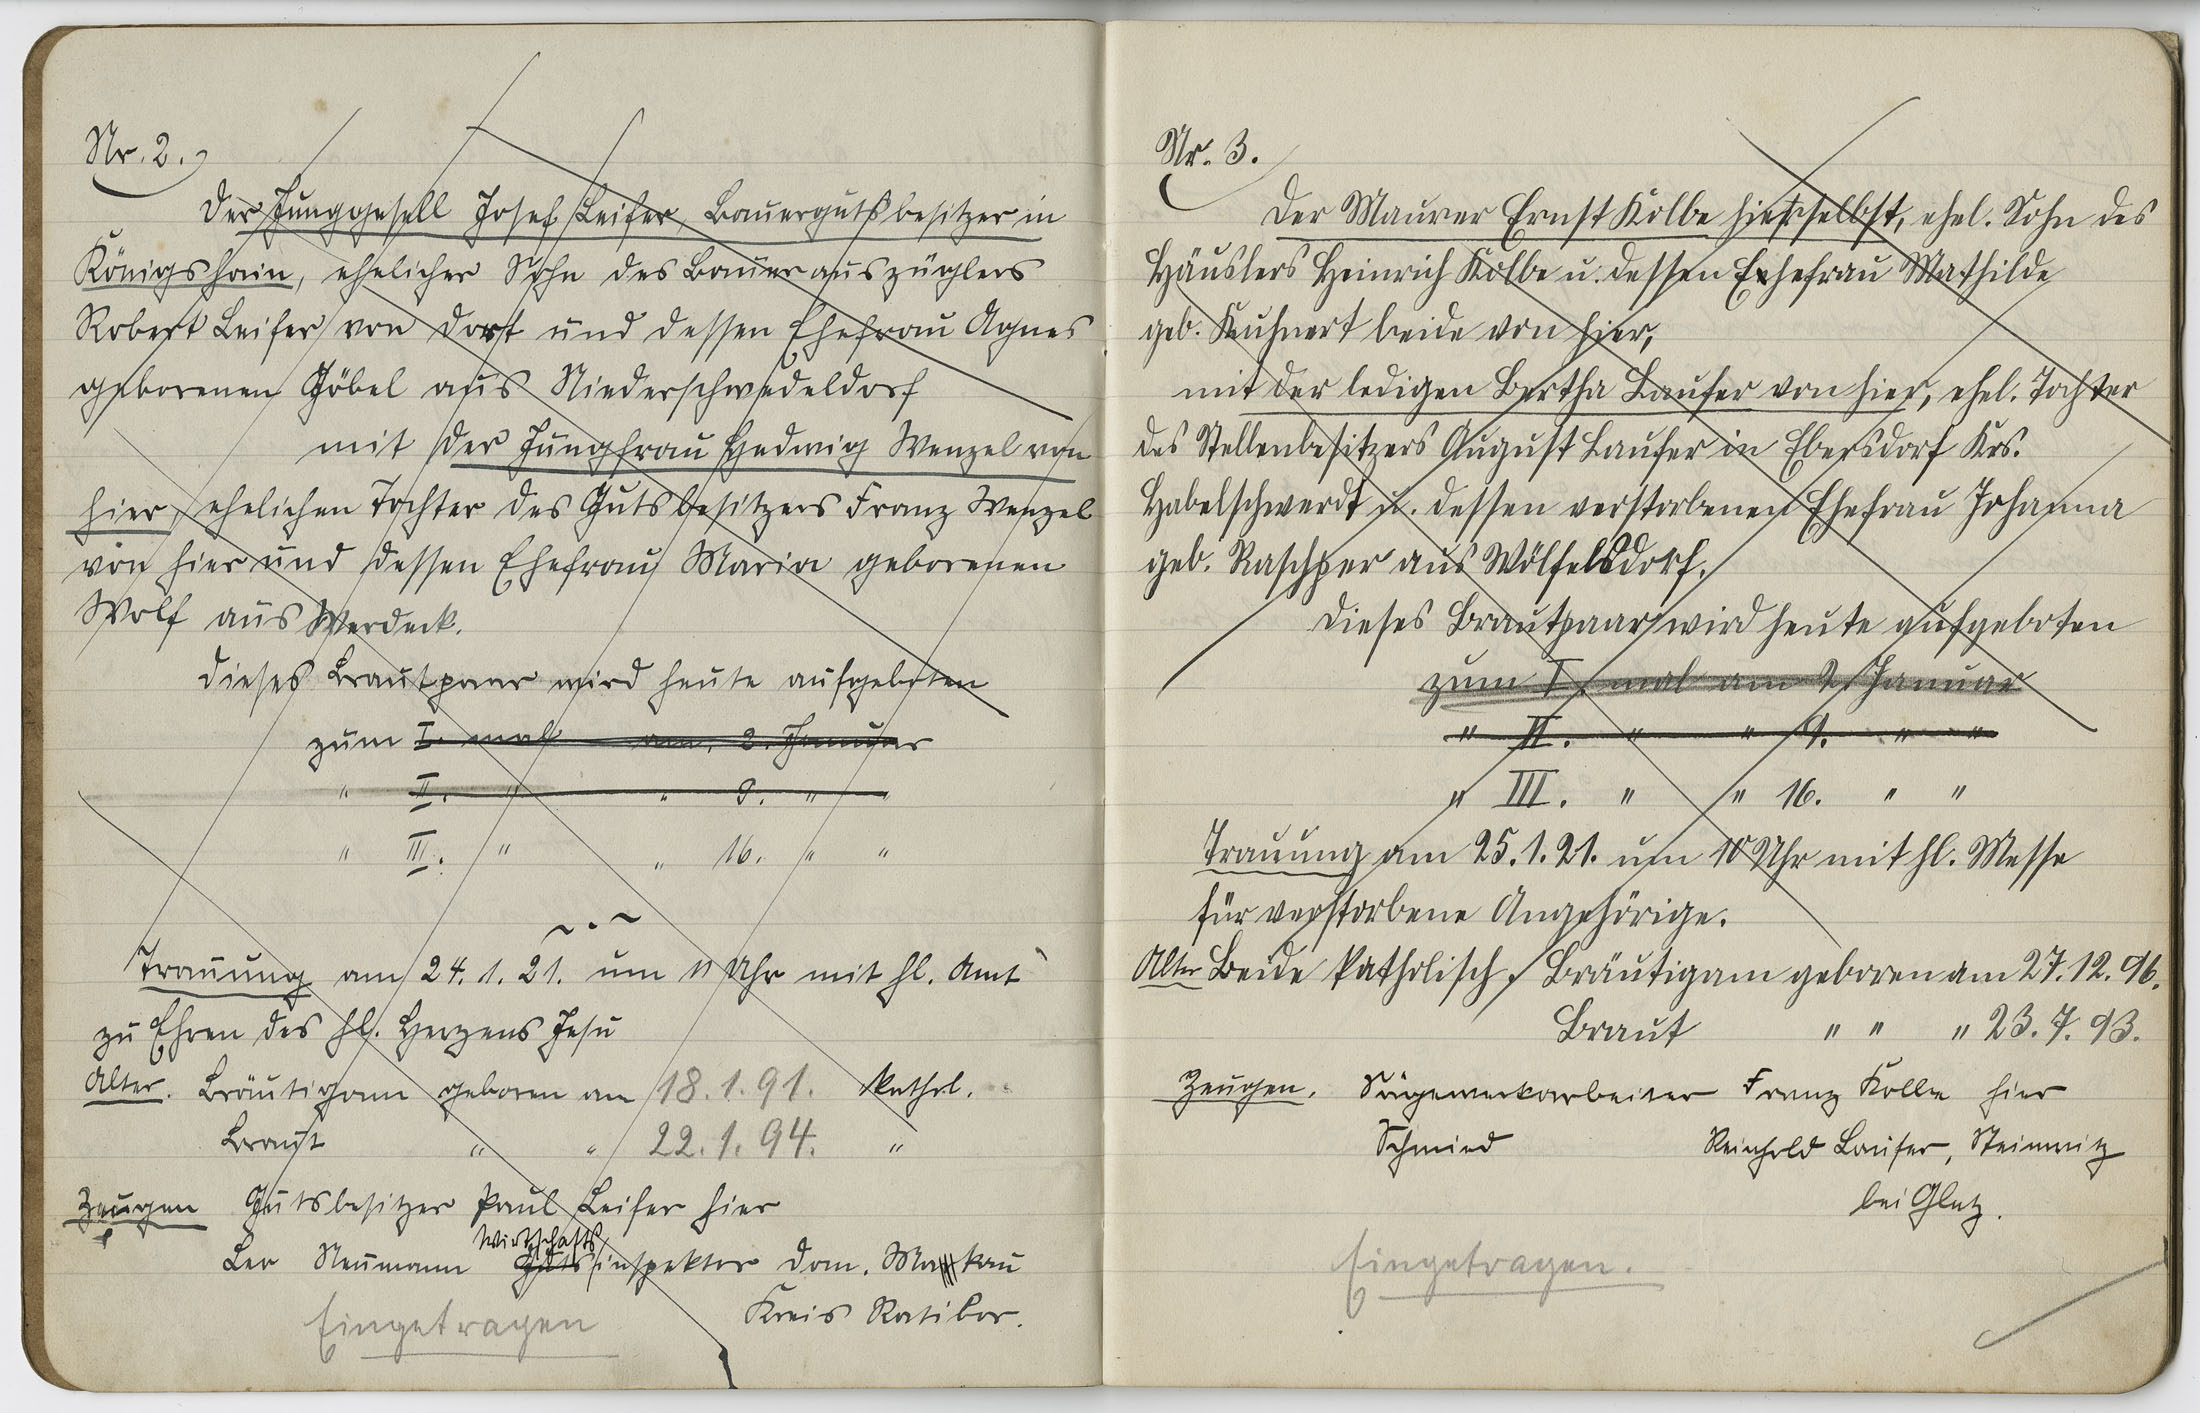 Nr. 2.
Der Junggesell Josef Leifer, Bauergutsbesitzer in
Königshain, ehelicher Sohn des Bauerauszüglers
Robert Leifer von dort und dessen Ehefrau Agnes
geborenen Göbel aus Niederschwedeldorf
mit der Jungfrau Hedwig Wenzel von
hier, ehelichen Tochter des Gutsbesitzers Franz Wenzel
von hier und dessen Ehefrau Maria geborenen
Wolf aus Werdeck.
Dieses Brautpaar wird heute aufgeboten
zum I. mal am 2. Januar
" II. " " 9. "
" III. " " 16. " "
Trauung am 24. 1. 21. um 11 Uhr mit hl. Amt
zu Ehren des hl. Herzens Jesu
Alter. Bräutigam geboren am 18. 1. 91. kathol.
Braut " " 22. 1. 94. "
Zeugen Gutsbesitzer Paul Leifer hier
Wirtschafts
Leo Neumann Gutsinspektor Dom. Makau
Kreis Ratibor.
Eingetragen
Nr. 3.
Der Maurer Ernst Kolbe hierselbst, ehel. Sohn des
Häuslers Heinrich Kolbe u. dessen Ehefrau Mathilde
geb. Kuhnert beide von hier,
mit der ledigen Bertha Laufer von hier, ehel. Tochter
des Stellenbesitzers August Laufer in Ebersdorf Krs.
Habelschwerdt u. dessen verstorbenen Ehefrau Johanna
geb. Raschper aus Wölfelsdorf.
Dieses Brautpaar wird heute aufgeboten
zum I. mal am 2. Januar
" II. " " 9. " "
" III. " " 16. " "
Trauung am 25. 1. 21. um 10 Uhr mit hl. Messe
für verstorbene Angehörige.
Alter Beide katholisch, Bräutigam geboren am 27. 12. 96.
Braut " " " 23. 7. 93.
Zeugen. Sägewerkarbeiter Franz Kolbe hier
Schmied Reinhold Laufer, Steinwitz
bei Glatz.
Eingetragen.